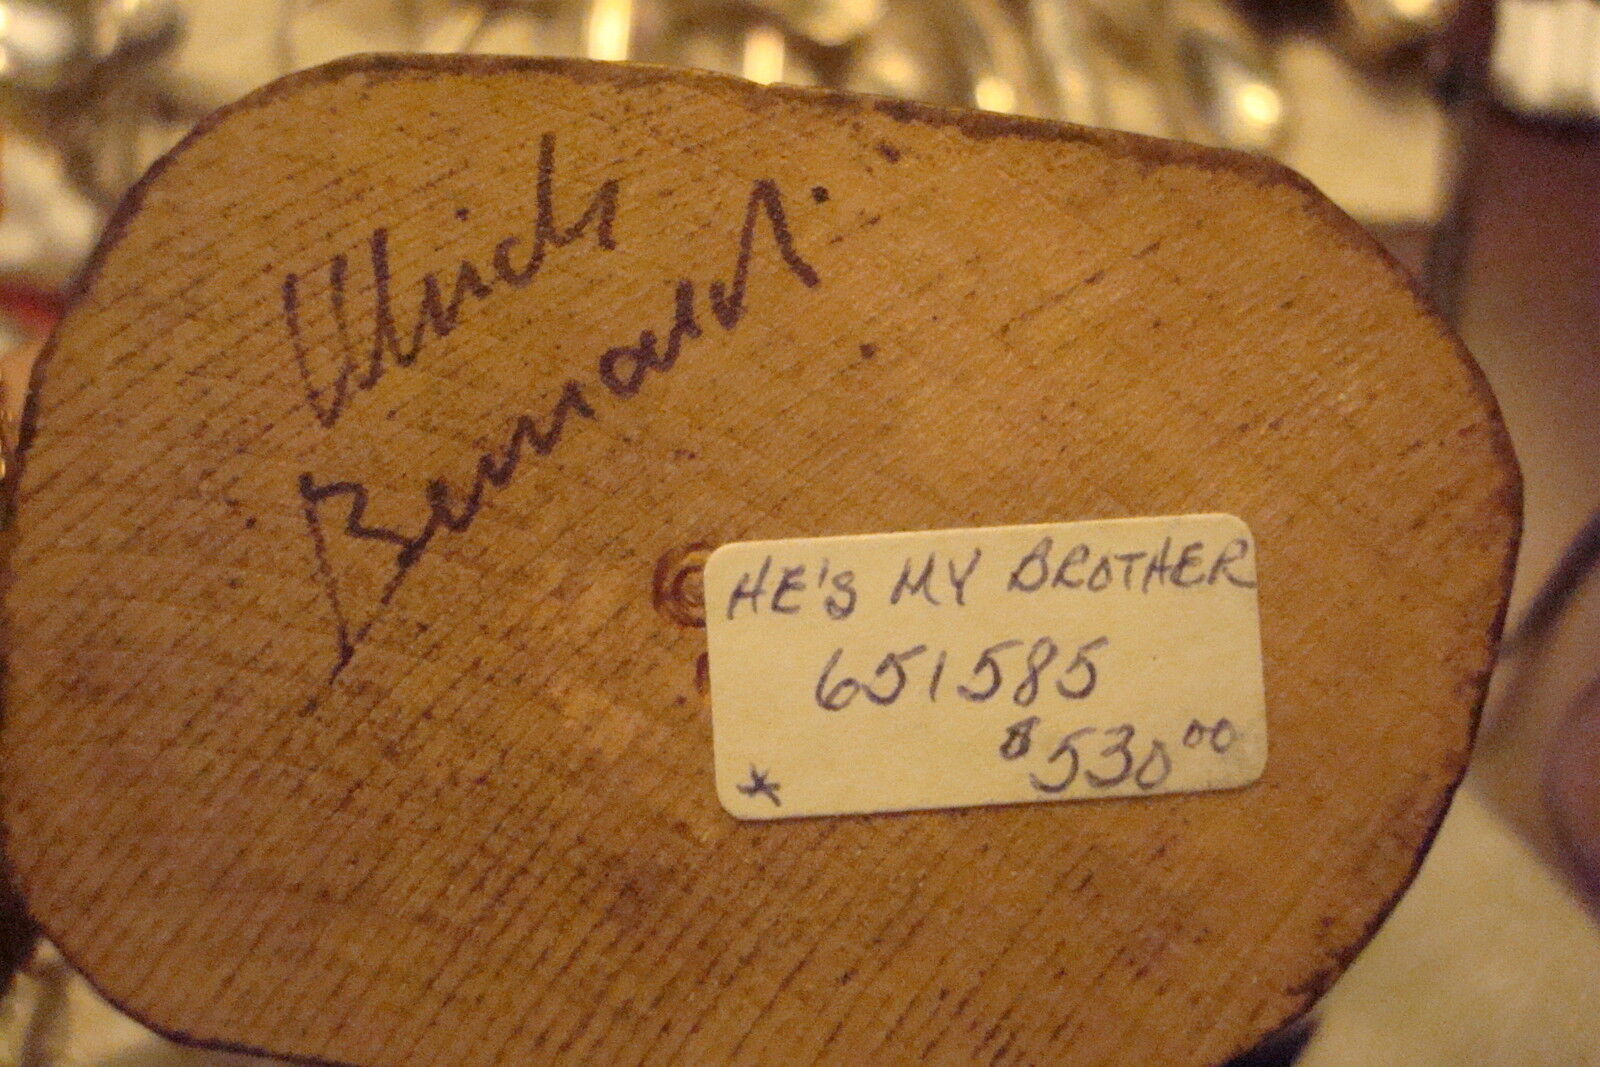 Ulrich
Bernardi.
HE'S MY BROTHER
651585
$530.00
*